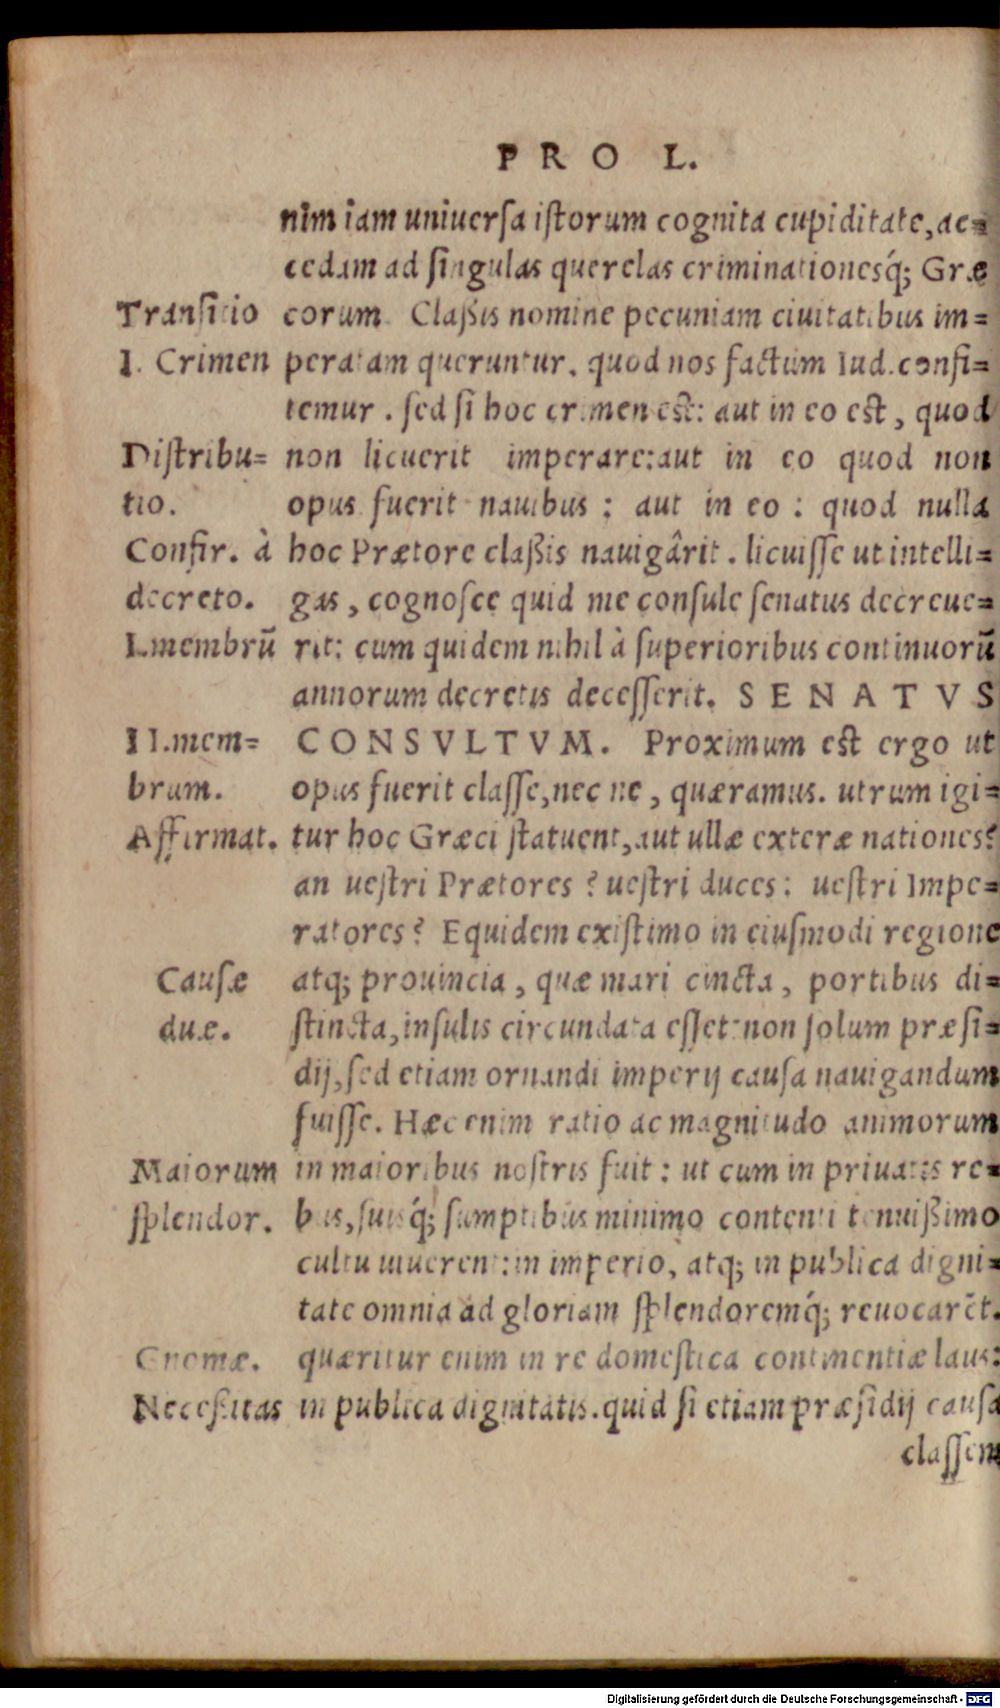 PRO L.
nim iam uniuersa istorum cognita cupiditate, ac=
cedam ad singulas querelas criminationesq́; Græ
Transitio
corum. Claßis nomine pecuniam ciuitatibus im=
I. Crimen
peratam queruntur. quod nos factum Iud. confi=
temur. sed si hoc crimen est: aut in eo est, quod
Distribu=
non licuerit imperare: aut in eo quod non
tio.
opus fuerit nauibus: aut in eo: quod nulla
Confir. à
hoc Prætore claßis nauigârit. licuisse ut intelli=
decreto.
gas, cognosce quid me consule senatus decreue=
I. membrū
rit: cum quidem nihil à superioribus continuorū
annorum decretis decesserit. SENATVS
II. mem=
CONSVLTVM. Proximum est ergo ut
brum.
opus fuerit classe, nec ne, quæramus. utrum igi=
Affirmat.
tur hoc Græci statuent, aut ullæ exteræ nationes?
an uestri Prætores? uestri duces: uestri Impe=
ratores? Equidem existimo in eiusmodi regione
Causæ
atq; prouincia, quæ mari cincta, portibus di=
duæ.
stincta, insulis circundata esset: non solum præsi=
dij, sed etiam ornandi imperij causa nauigandum
fuisse. Hæc enim ratio ac magnitudo animorum
Maiorum
in maioribus nostris fuit: ut cum in priuatis re=
splendor.
bus, suisq́; sumptibus minimo contenti tenuißimo
cultu uiuerent: in imperio, atq; in publica digni=
tate omnia ad gloriam splendoremq́; reuocarēt.
Gnomæ.
quæritur enim in re domestica continentiæ laus:
Neceßitas
in publica dignitatis. quid si etiam præsidij causa
classem
Digitalisierung gefördert durch die Deutsche Forschungsgemeinschaft - DFG